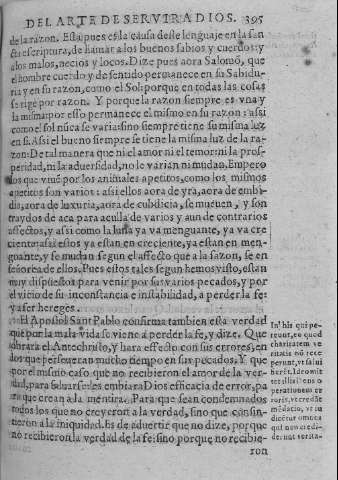 DEL ARTE DE SERVIR A DIOS. 395
de la razon. Esta pues es la causa deste lenguaje en la san
cta escriptura, de llamar a los buenos sabios y cuerdos: y
a los malos, necios y locos. Dize pues aora Salomõ, que
el hombre cuerdo y de sentido permanece en su Sabidu-
ria y en su razon, como el Sol: porque en todas las cosas
se rige por razon. Y porque la razon siempre es vna y
la misma: por esso permanece el mismo en su razon: assi
como el sol nũca se varia: sino siempre tiene su misma luz
en si. Assi el bueno siempre se tiene la misma luz de la ra-
zon: De tal manera que ni el amor ni el temor: ni la pros-
peridad, ni la aduersidad, no le varian ni mudan. Empero
los que viuẽ por los animales apetitos, como los mismos
apetitos son varios: assi ellos aora de yra, aora de embi-
dia, aora de luxuria, aora de cubdicia, se mueuen, y son
traydos de aca para aculla de varios y aun de contrarios
affectos, y assi como la luna ya va menguante, ya va cre
ciente: assi estos ya estan en creciente, ya estan en men-
guante, y se mudan segun el affecto que a la sazon, se en
señorea de ellos. Pues estos tales segun hemos visto, estan
muy dispuestos para venir por sus varios pecados, y por
el vicio de su inconstancia e instabilidad, a perder la fe:
y a ser hereges.
El Apostol Sant Pablo confirma tambien esta verdad
que por la mala vida se viene a perder la fe, y dize. Que
obrara el Antechristo, y hara effecto con sus errores, en
los que perseueran mucho tiempo en sus pecados. Y que
por el mismo caso que no recibieron el amor de la ver-
dad, para saluarse: les embiara Dios efficacia de error, pa
ra que crean a la mentira. Para que sean condemnados
todos los que no creyeron a la verdad, sino que consin-
tieron a la iniquidad. Es de aduertir que no dize, porque
no recibieron la verdad de la fe: sino porque no recibie-
ron
In his qui pe
reunt, eo quod
charitatem ve
ritatis nõ rece
perunt, vt salui
fierẽt. Ideo mit
tet illis Deus o
perationem er
roris, vt credãt
mẽdacio, vt iu
dicẽtur omnes
qui non credi-
derunt verita-